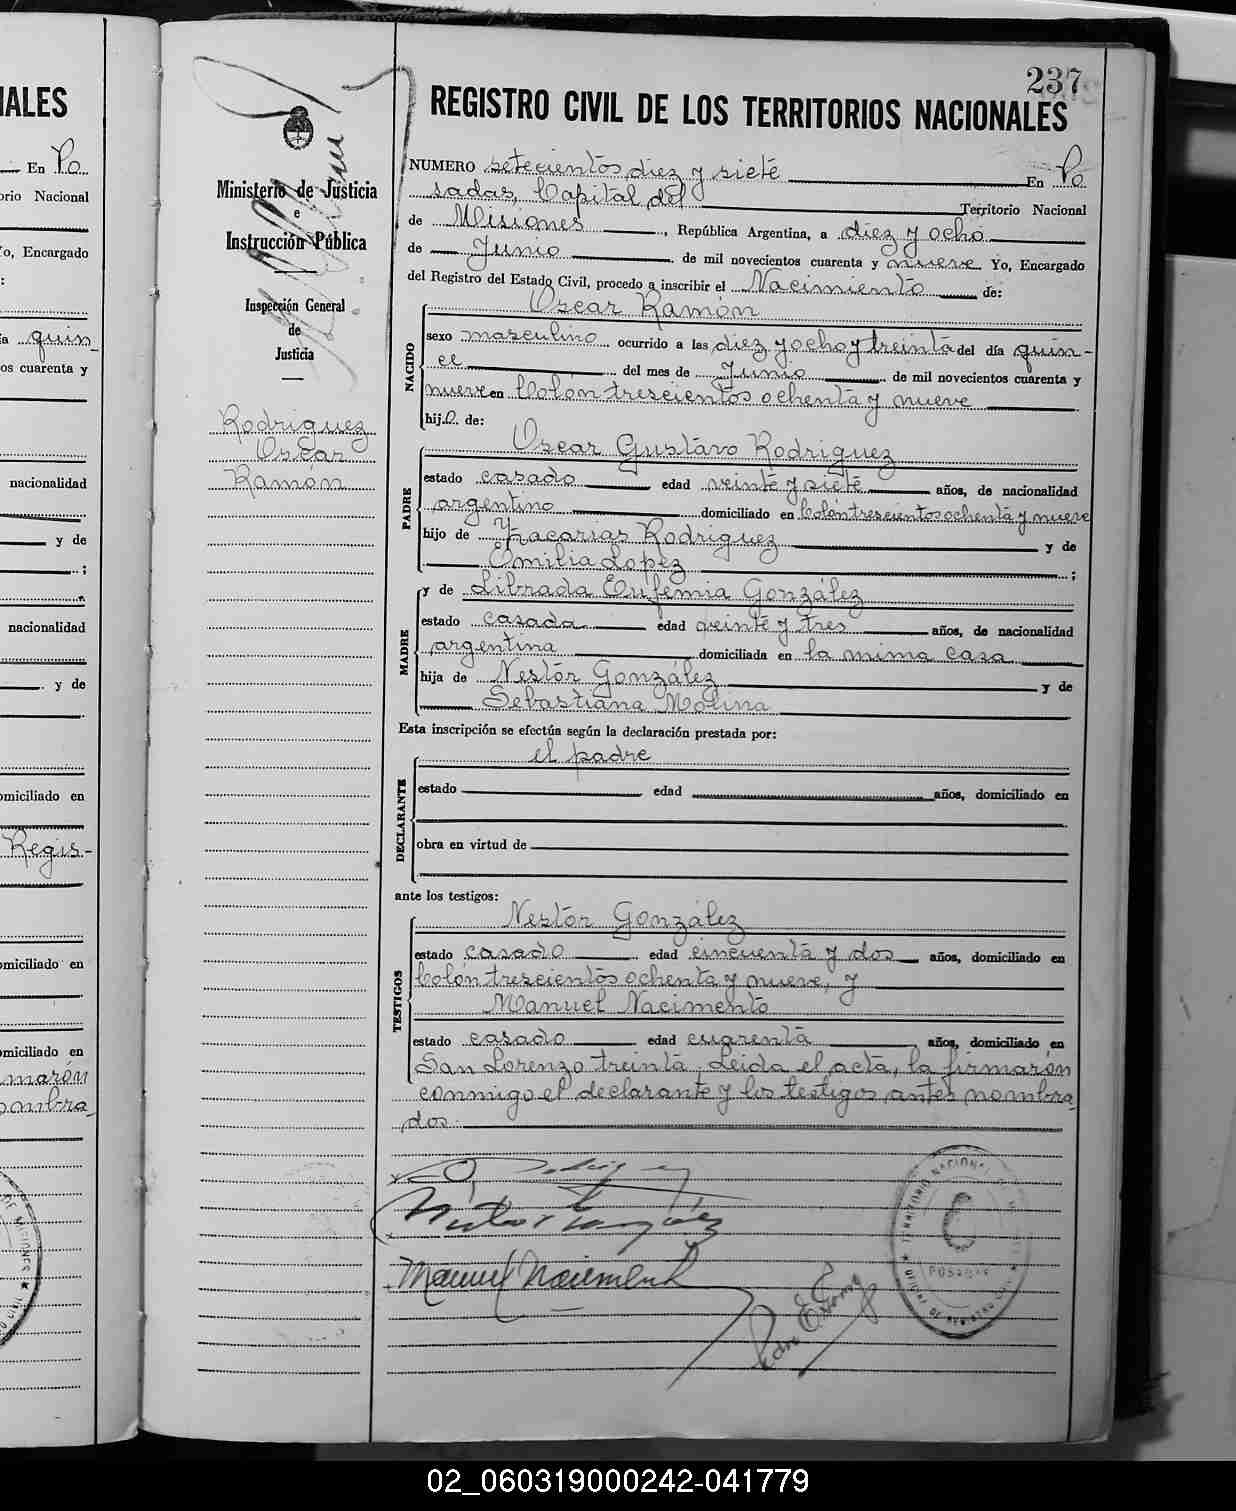 IALES
En Po
rio Nacional
o, Encargado
:
ía quin-
os cuarenta y
nacionalidad
y de
;
nacionalidad
y de
omiciliado en
Regis-
omiciliado en
omiciliado en
maron
ombra-
Ministerio de Justicia
e
Instrucción Pública
Inspección General
de
Justicia
Rodriguez
Oscar
Ramón
237
REGISTRO CIVIL DE LOS TERRITORIOS NACIONALES
NUMERO setecientos diez y siete En Po
sadas, Capital del Territorio Nacional
de Misiones, República Argentina, a diez y ocho
de Junio de mil novecientos cuarenta y nueve Yo, Encargado
del Registro del Estado Civil, procedo a inscribir el Nacimiento de:
NACIDO
Oscar Ramón
sexo masculino ocurrido a las diez y ocho y treinta del día quin-
ce del mes de Junio de mil novecientos cuarenta y
nueve en Colón trescientos ochenta y nueve
hijo de:
PADRE
Oscar Gustavo Rodriguez
estado casado edad veinte y siete años, de nacionalidad
argentino domiciliado en Colón trescientos ochenta y nueve
hijo de Zacarias Rodriguez y de
Emilia Lopez ;
MADRE
y de Librada Eufemia González
estado casada edad veinte y tres años, de nacionalidad
argentina domiciliada en la mima casa
hija de Nestor González y de
Sebastiana Molina
Esta inscripción se efectúa según la declaración prestada por:
DECLARANTE
el padre
estado edad años, domiciliado en
obra en virtud de
ante los testigos:
TESTIGOS
Nestor González
estado casado edad cincuenta y dos años, domiciliado en
Colón trescientos ochenta y nueve, y
Manuel Nacimento
estado casado edad cuarenta años, domiciliado en
San Lorenzo treinta. Leida el acta, la firmaron
conmigo el declarante y los testigos antes nombra-
dos.
Manuel Nacimento
TERRITORIO NACIONAL DE MISIONES
POSADAS
OFICINA DE REGISTRO CIVIL
02_060319000242-041779